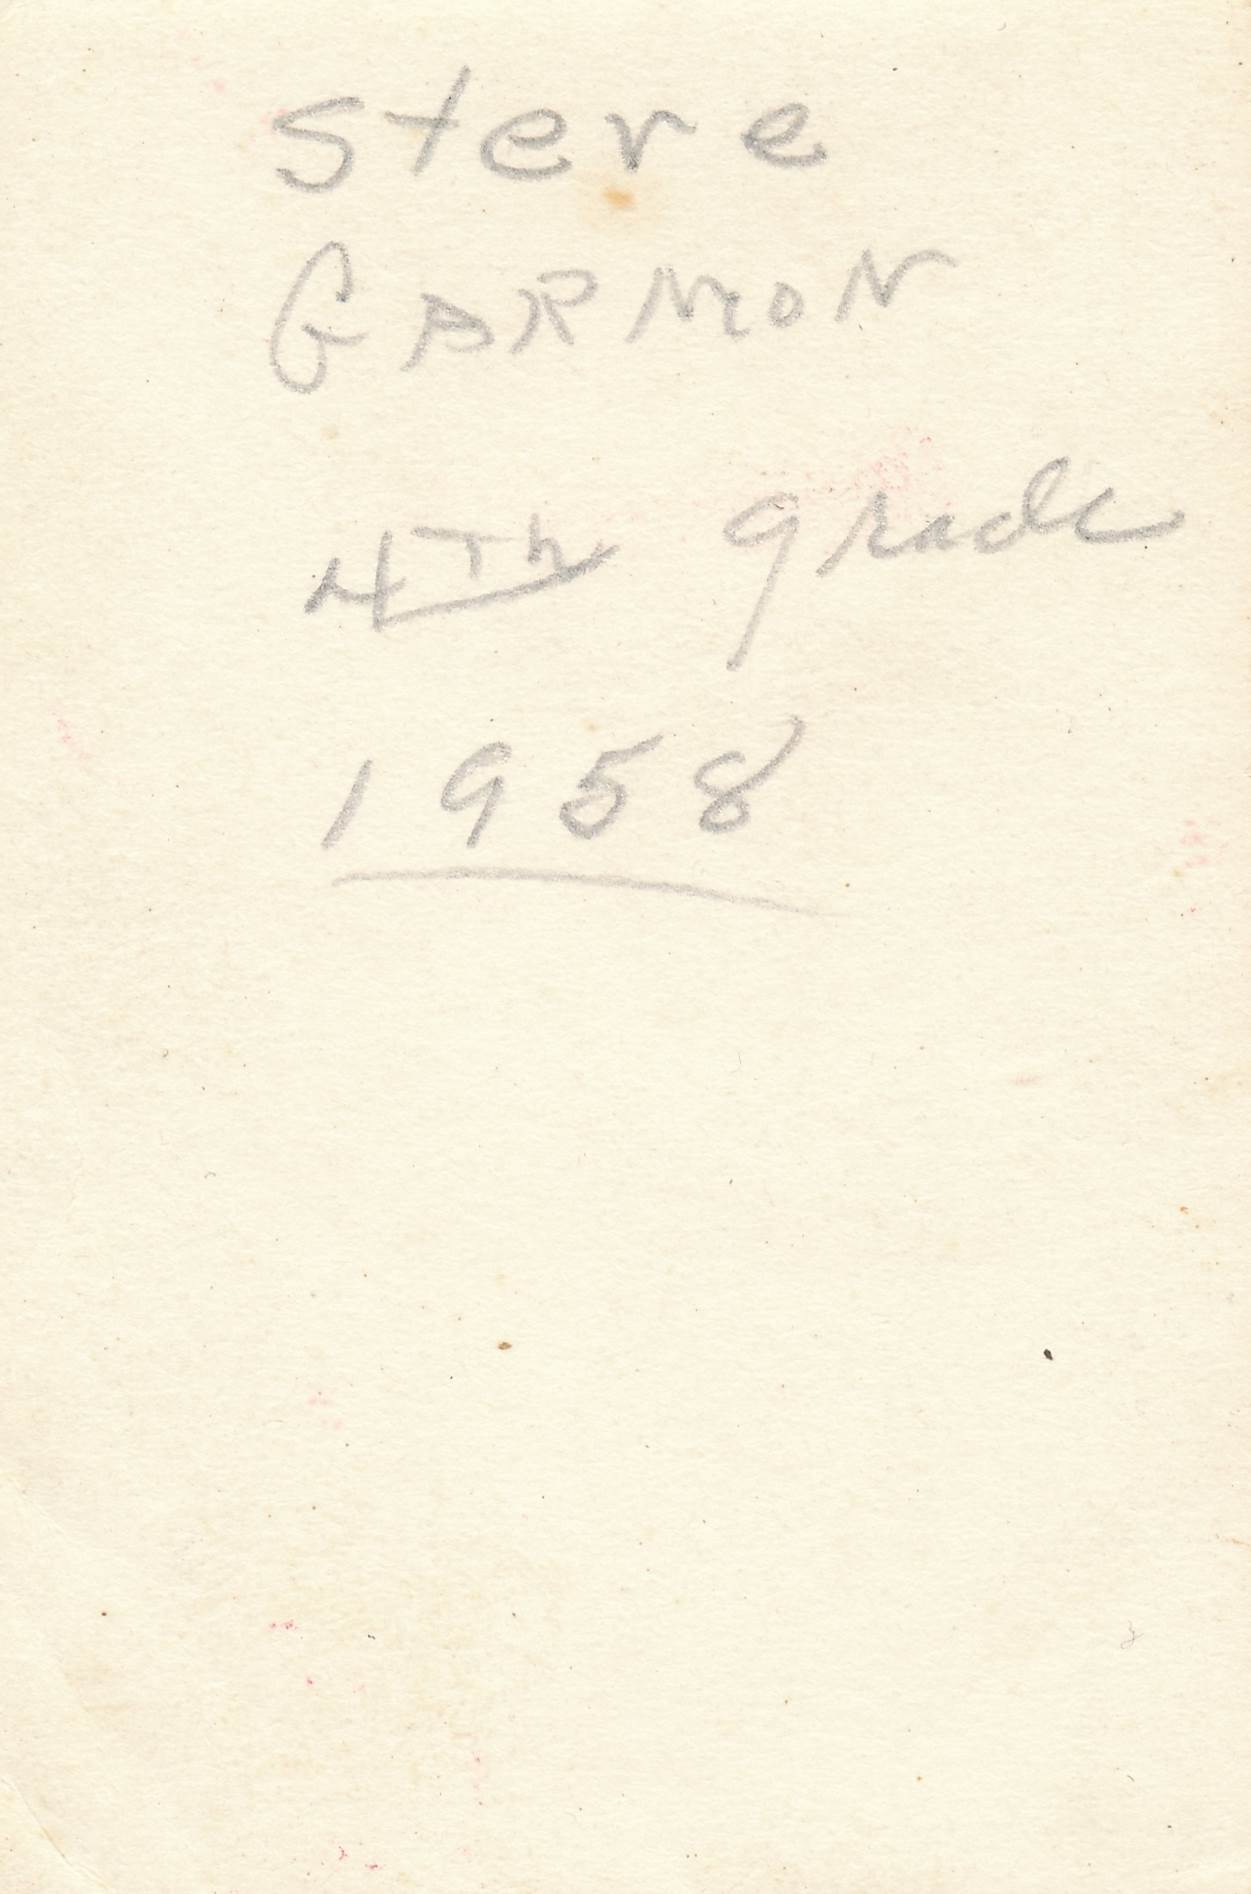 Steve
GARMON
4Th grade
1958